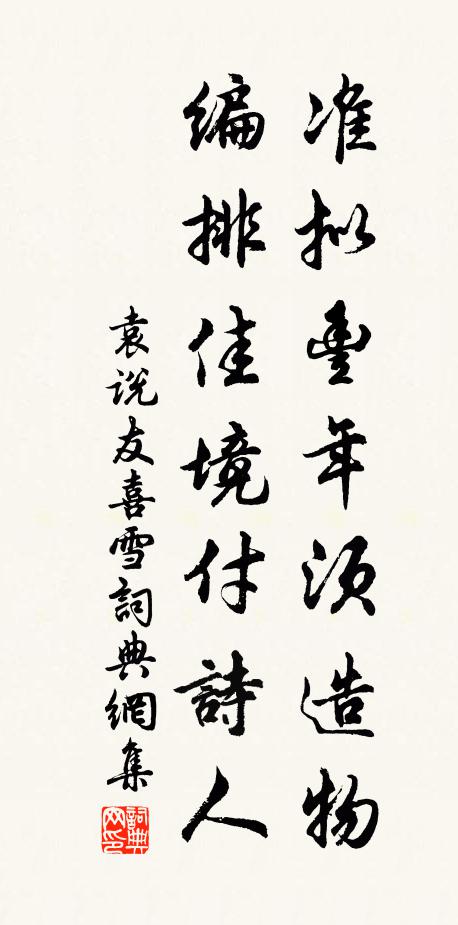 准拟豐年须造物
编排佳境付詩人
袁说友喜雪詞典網集
詞典网印